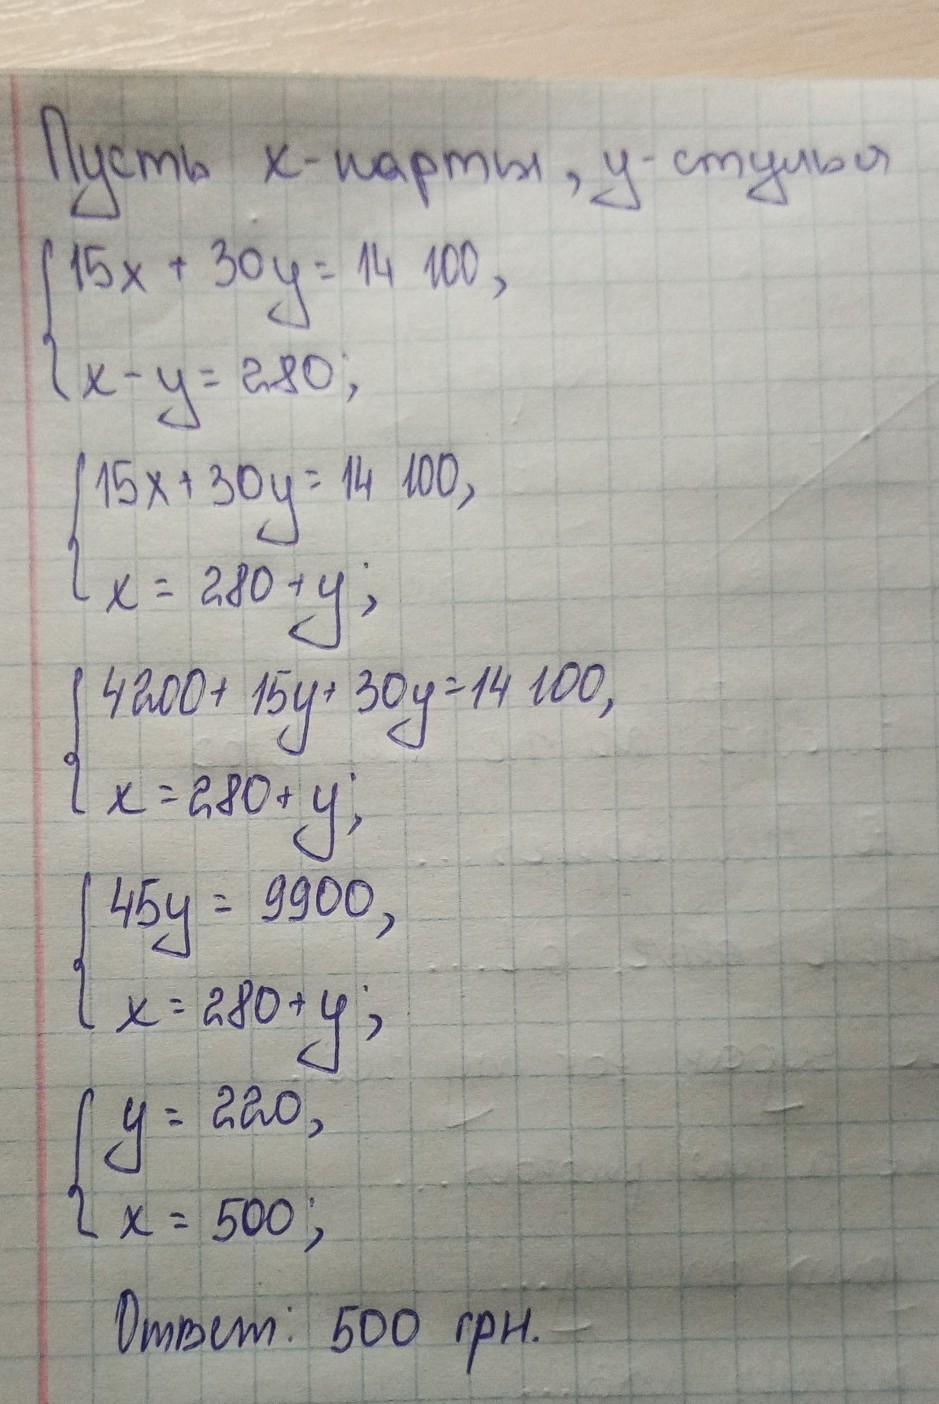 Пусть x-парты, y-стулья
15x + 30y = 14 100,
x - y = 280;
15x + 30y = 14 100,
x = 280 + y;
4200 + 15y + 30y = 14 100,
x = 280 + y;
45y = 9900,
x = 280 + y;
y = 220,
x = 500;
Ответ: 500 грн.